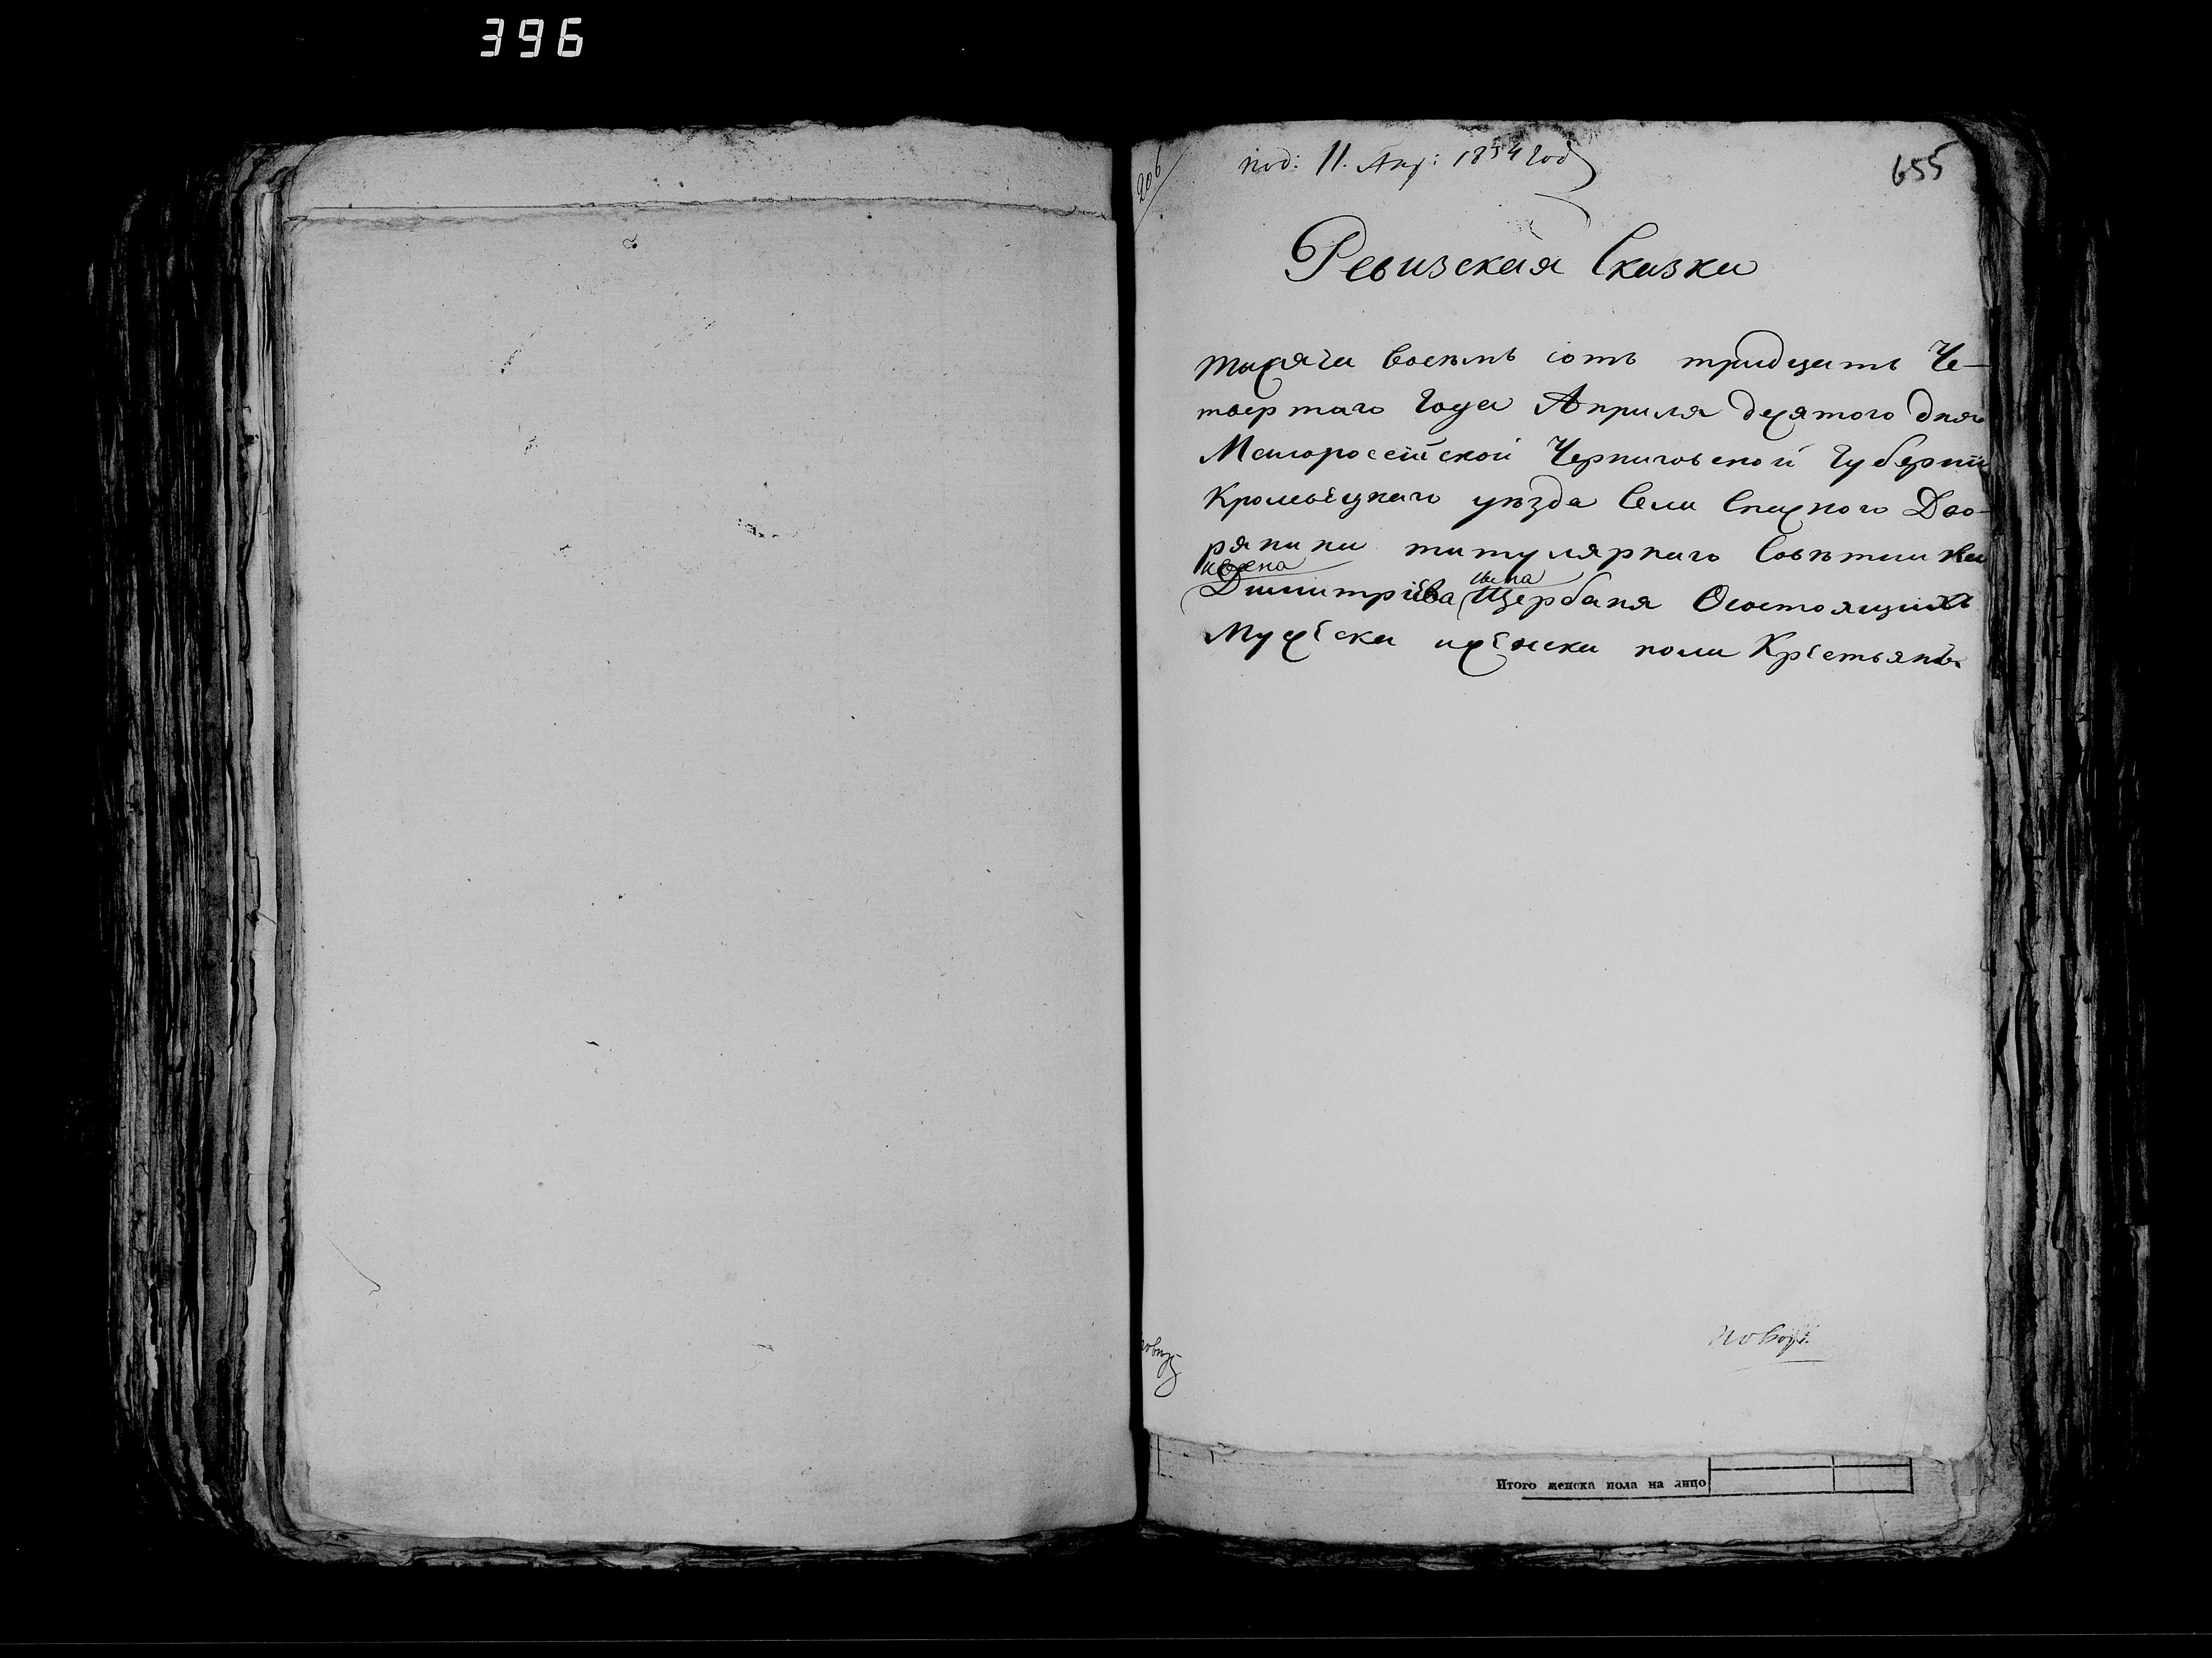 396
206
под: 11. Апр: 1834 год
655
Ревизская Сказка
тысяча восемь сотъ тридцать Че-
твертаго Года Апреля десятого дня
Малоросейской Черниговской Губернии
Кролевецкаго уезда Села Спаского Дво-
рянина титулярнаго Советника
Ивана сына
Димитрiева Щербаня О состоящихъ
Мужеска и женска пола Крестьянъ.
Итого женска пола на лицо